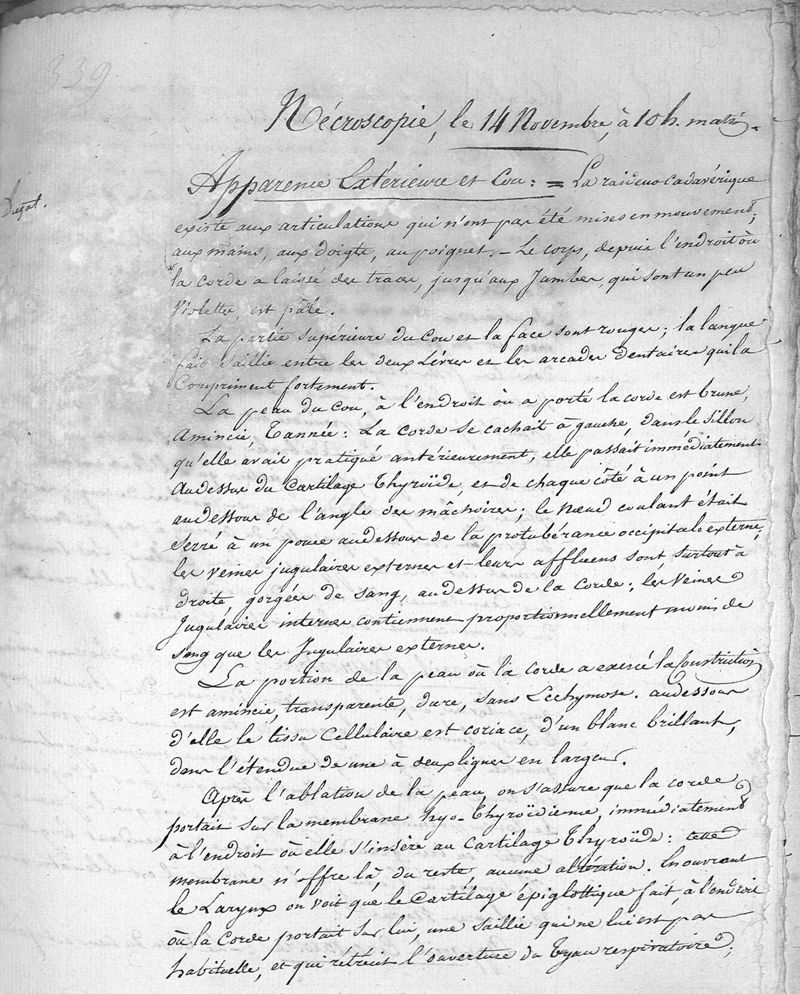 339
Nécroscopie, le 14 Novembre, à 10 h. matin.
Apparence Extérieure et Cou : = La raideur cadavérique
existe aux articulations qui n'ont pas été mises en mouvement,
aux mains, aux doigts, au poignet. – Le corps, depuis l'endroit où
la corde a laissé des traces, jusqu'aux Jambes, qui sont un peu
Violettes, est pâle.
La partie supérieure du Cou et la face sont rouges ; la langue
fait saillie entre les deux Lèvres et les arcades dentaires qui la
Compriment fortement.
La peau du cou, à l'endroit où a porté la corde est brune,
amincie, tannée : La corde se cachait à gauche, dans le sillon
qu'elle avait pratiqué antérieurement, elle passait immédiatement
au dessus du Cartilage Thyroïde et de chaque côté à un point
au dessous de l'angle des mâchoires ; le nœud coulant était
serré à un pouce au dessous de la protubérance occipitale externe,
les veines jugulaires externes et leurs affluens sont, surtout à
droite, gorgées de sang, au dessus de la corde ; les Veines
Jugulaires internes contiennent proportionnellement moins de
sang que les Jugulaires externes.
La portion de la peau où la corde a exercé la Constriction
est amincie, transparente, dure, sans Ecchymose. au dessous
d'elle le tissu Cellulaire est coriace, d'un blanc brillant,
dans l'étendue de une à deux lignes en largeur.
Après l'ablation de la peau, on s'assure que la corde
portait sur la membrane hyo-Thyroïdienne, immédiatement
à l'endroit où elle s'insère au Cartilage Thyroïde : cette
membrane n'offre là, du reste, aucune altération. En ouvrant
le Larynx on voit que le Cartilage épiglottique fait, à l'endroit
où la Corde portait sur lui, une saillie qui ne lui est pas
habituelle, et qui rétrécit l'ouverture du Tyau respiratoire ;